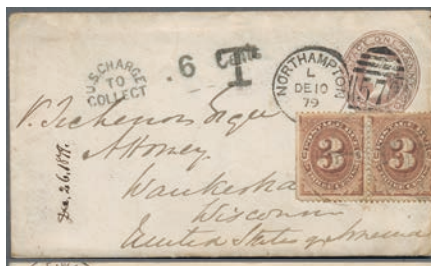 U.S. CHARGE
TO
COLLECT
.6 Cents
T
NORTHAMPTON
L
DE 10
79
3 3
V. Tichenor Esqre
Attorney
Waukesha
Wisconsin
United States of America
Dec, 26, 1879.